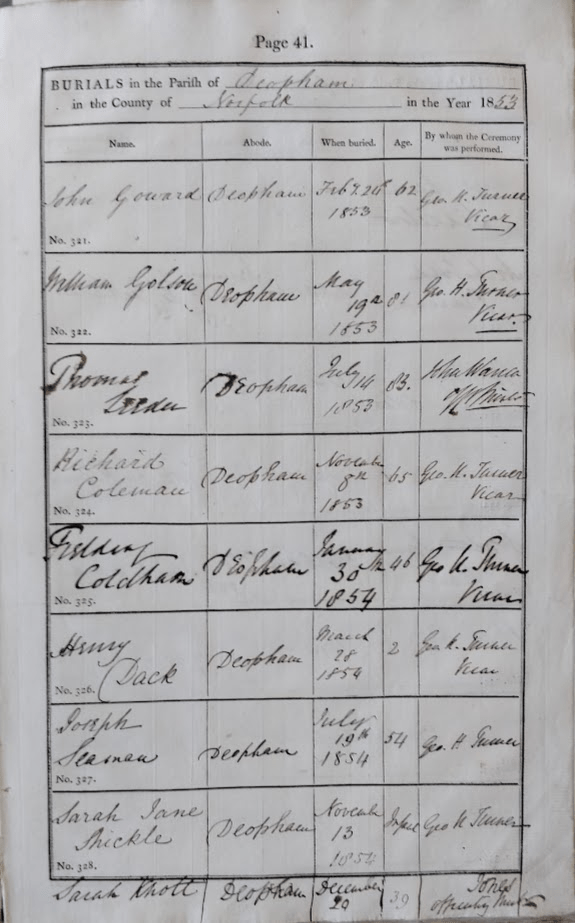 Page 41.
BURIALS in the Parish of Deopham
in the County of Norfolk in the Year 1853
Name. Abode. When buried. Age. By whom the Ceremony was performed.
John Goward Deopham Feby. 24th 62 Geo. H. Turner
1853 Vicar
No. 321.
William Golson Deopham May 81 Geo. H. Turner
19th Vicar
1853
No. 322.
Thomas Deopham July 14 83.
Leeder 1853
No. 323.
Richard Deopham November 65 Geo. H. Turner
Coleman 8th Vicar
1853
No. 324.
Fielding Deopham January 46 Geo H. Turner
Coldham 30th Vicar
1854
No. 325.
Henry Deopham March 2 Geo H. Turner
Dack 28 Vicar
1854
No. 326.
Joseph Deopham July 54 Geo. H Turner
Seaman 19th
1854
No. 327.
Sarah Jane Deopham Novembr Infant Geo H Turner
Mickle 13
1854
No. 328.
Sarah Knott Deopham December 39 Jones
20